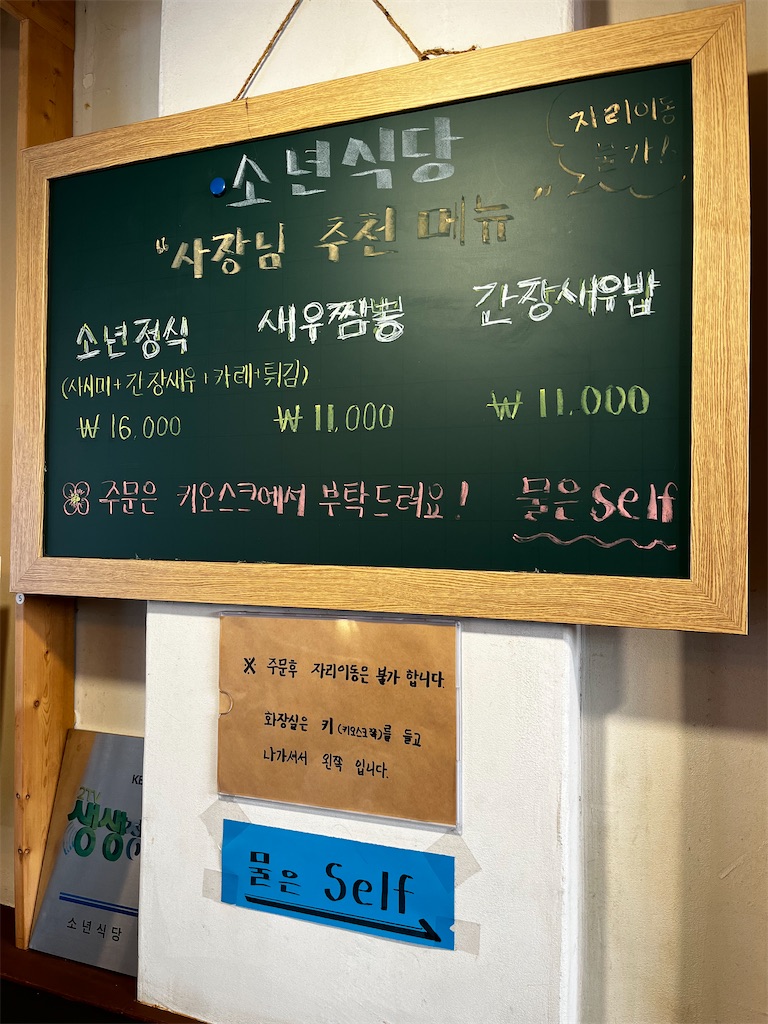 소년식당
자리이동
불가!
"사장님 추천 메뉴"
소년정식
(사시미+간장새우+카레+튀김)
₩ 16,000
새우짬뽕
₩ 11,000
간장새우밥
₩ 11.000
주문은 키오스크에서 부탁드려요!
물은 self
※ 주문후 자리이동은 불가 합니다.
화장실은 키(키오스크쪽)를 들고
나가셔서 왼쪽 입니다.
물은 Self
2TV
생생
소년식당